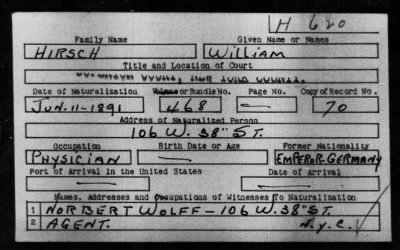 H 620
Family Name Given Name or Names
HIRSCH William
Title and Location of Court
COUNTY.
Date of Naturalization Volume or Bundle No. Page No. Copy of Record No.
JUN. 11-1891 468 — 70
Address of Naturalized Person
106 W. 38" ST.
Occupation Birth Date or Age Former Nationality
PHYSICIAN — EMPEROR-GERMANY
Port of Arrival in the United States Date of Arrival
— —
Names, Addresses and Occupations of Witnesses To Naturalization
1 NORBERT WOLFF - 106 W. 38" ST.
2 AGENT. N.Y.C.